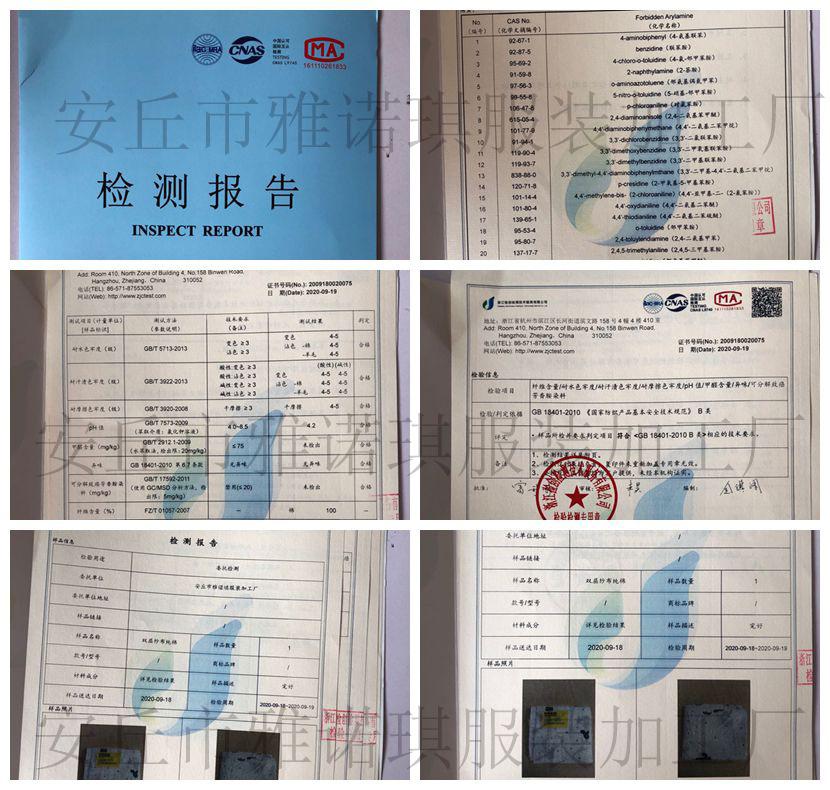 ilac-MRA
CNAS
中国认可
国际互认
检测
TESTING
CNAS L9745
MA
161110261833
检测报告
INSPECT REPORT
No. CAS No. Forbidden Arylamine
(编号) (化学文摘编号) (化学名称)
1 92-67-1 4-aminobiphenyl (4-氨基联苯)
2 92-87-5 benzidine (联苯胺)
3 95-69-2 4-chloro-o-toluidine (4-氯-邻甲苯胺)
4 91-59-8 2-naphthylamine (2-萘胺)
5 97-56-3 o-aminoazotoluene (邻氨基偶氮甲苯)
6 99-55-8 5-nitro-o-toluidine (5-硝基-邻甲苯胺)
7 106-47-8 p-chloroaniline (对氯苯胺)
8 615-05-4 2,4-diaminoanisole (2,4-二氨基苯甲醚)
9 101-77-9 4,4'-diaminobiphenymethane (4,4'-二氨基二苯甲烷)
10 91-94-1 3,3'-dichlorobenzidine (3,3'-二氯联苯胺)
11 119-90-4 3,3'-dimethoxybenzidine (3,3'-二甲氧基联苯胺)
12 119-93-7 3,3'-dimethylbenzidine (3,3'-二甲基联苯胺)
13 838-88-0 3,3'-dimethyl-4,4'-diaminobiphenylmethane (3,3'-二甲基-4,4'-二氨基二苯甲烷)
14 120-71-8 p-cresidine (2-甲氧基-5-甲基苯胺)
15 101-14-4 4,4'-methylene-bis- (2-chloroaniline) (4,4'-亚甲基-二- (2-氯苯胺))
16 101-80-4 4,4'-oxydianiline (4,4'-二氨基二苯醚)
17 139-65-1 4,4'-thiodianiline (4,4'-二氨基二苯硫醚)
18 95-53-4 o-toluidine (邻甲苯胺)
19 95-80-7 2,4-toluylendiamine (2,4-二氨基甲苯)
20 137-17-7 2,4,5-trimethylaniline (2,4,5-三甲基苯胺)
公司
章
安丘市雅诺琪服装加工厂
Add: Room 410, North Zone of Building 4, No.158 Binwen Road,
Hangzhou, Zhejiang, China 310052
电话(TEL): 86-571-87553053
网站(Web): http://www.zjctest.com
证书号码(No.): 2009180020075
日 期(Date): 2020-09-19
测试项目(计量单位) 测试方法 技术要求 测试结果 判定
[样品标识] (参数说明) (备注)
耐水色牢度 (级) GB/T 5713-2013 变色≥3 沾色≥3 变色 4-5 沾色 -棉 4-5 -羊毛 4-5 合格
耐汗渍色牢度 (级) GB/T 3922-2013 酸性:变色≥3 酸性:沾色≥3 碱性:变色≥3 碱性:沾色≥3 (酸性) (碱性) 变色 4-5 4-5 沾色 -棉 4-5 4-5 -羊毛 4-5 4-5 合格
耐摩擦色牢度 (级) GB/T 3920-2008 干摩擦≥3 干摩擦 4-5 合格
pH值 GB/T 7573-2009 (萃取介质: 氯化钾溶液) 4.0~8.5 4.2 合格
甲醛含量 (mg/kg) GB/T 2912.1-2009 (水萃取法, 检出限: 20mg/kg) ≤75 未检出 合格
异味 GB 18401-2010 第6.7条款 无异味 无异味 合格
可分解致癌芳香胺染料 (mg/kg) GB/T 17592-2011 (使用 GC/MSD 分析方法, 检出限: 5mg/kg) 禁用(≤20) 未检出 合格
纤维含量 (%) FZ/T 01057-2007 — 棉 100 —
地址: 浙江省杭州市滨江区长河街道滨文路 158 号 4 幢 4 楼 410 室
Add: Room 410, North Zone of Building 4, No.158 Binwen Road,
Hangzhou, Zhejiang, China 310052
电话(TEL): 86-571-87553053
网站(Web): http://www.zjctest.com
证书号码(No.): 2009180020075
日 期(Date): 2020-09-19
检验信息
检验项目 纤维含量/耐水色牢度/耐汗渍色牢度/耐摩擦色牢度/pH值/甲醛含量/异味/可分解致癌芳香胺染料
检验/判定依据 GB 18401-2010《国家纺织产品基本安全技术规范》 B 类
评定 样品所检并要求判定项目 符合 <GB 18401-2010 B类>相应的技术要求。
备注
1、检测结果见附页。
批准: 审核: 编制:
安丘市雅诺琪服装加工厂
检测报告
样品信息
检验用途 委托检测
委托单位 安丘市雅诺琪服装加工厂
委托单位地址 /
样品链接 /
样品名称 双层纱布纯棉 样品数量 1
款号/型号 / 商标品牌 /
材料成分 详见检验结果 样品描述 完好
样品送达日期 2020-09-18 检验周期 2020-09-18~2020-09-19
样品照片
委托单位地址 /
样品链接 /
样品名称 双层纱布纯棉 样品数量 1
款号/型号 / 商标品牌 /
材料成分 详见检验结果 样品描述 完好
样品送达日期 2020-09-18 检验周期 2020-09-18~2020-09-19
样品照片
安丘市雅诺琪服装加工厂